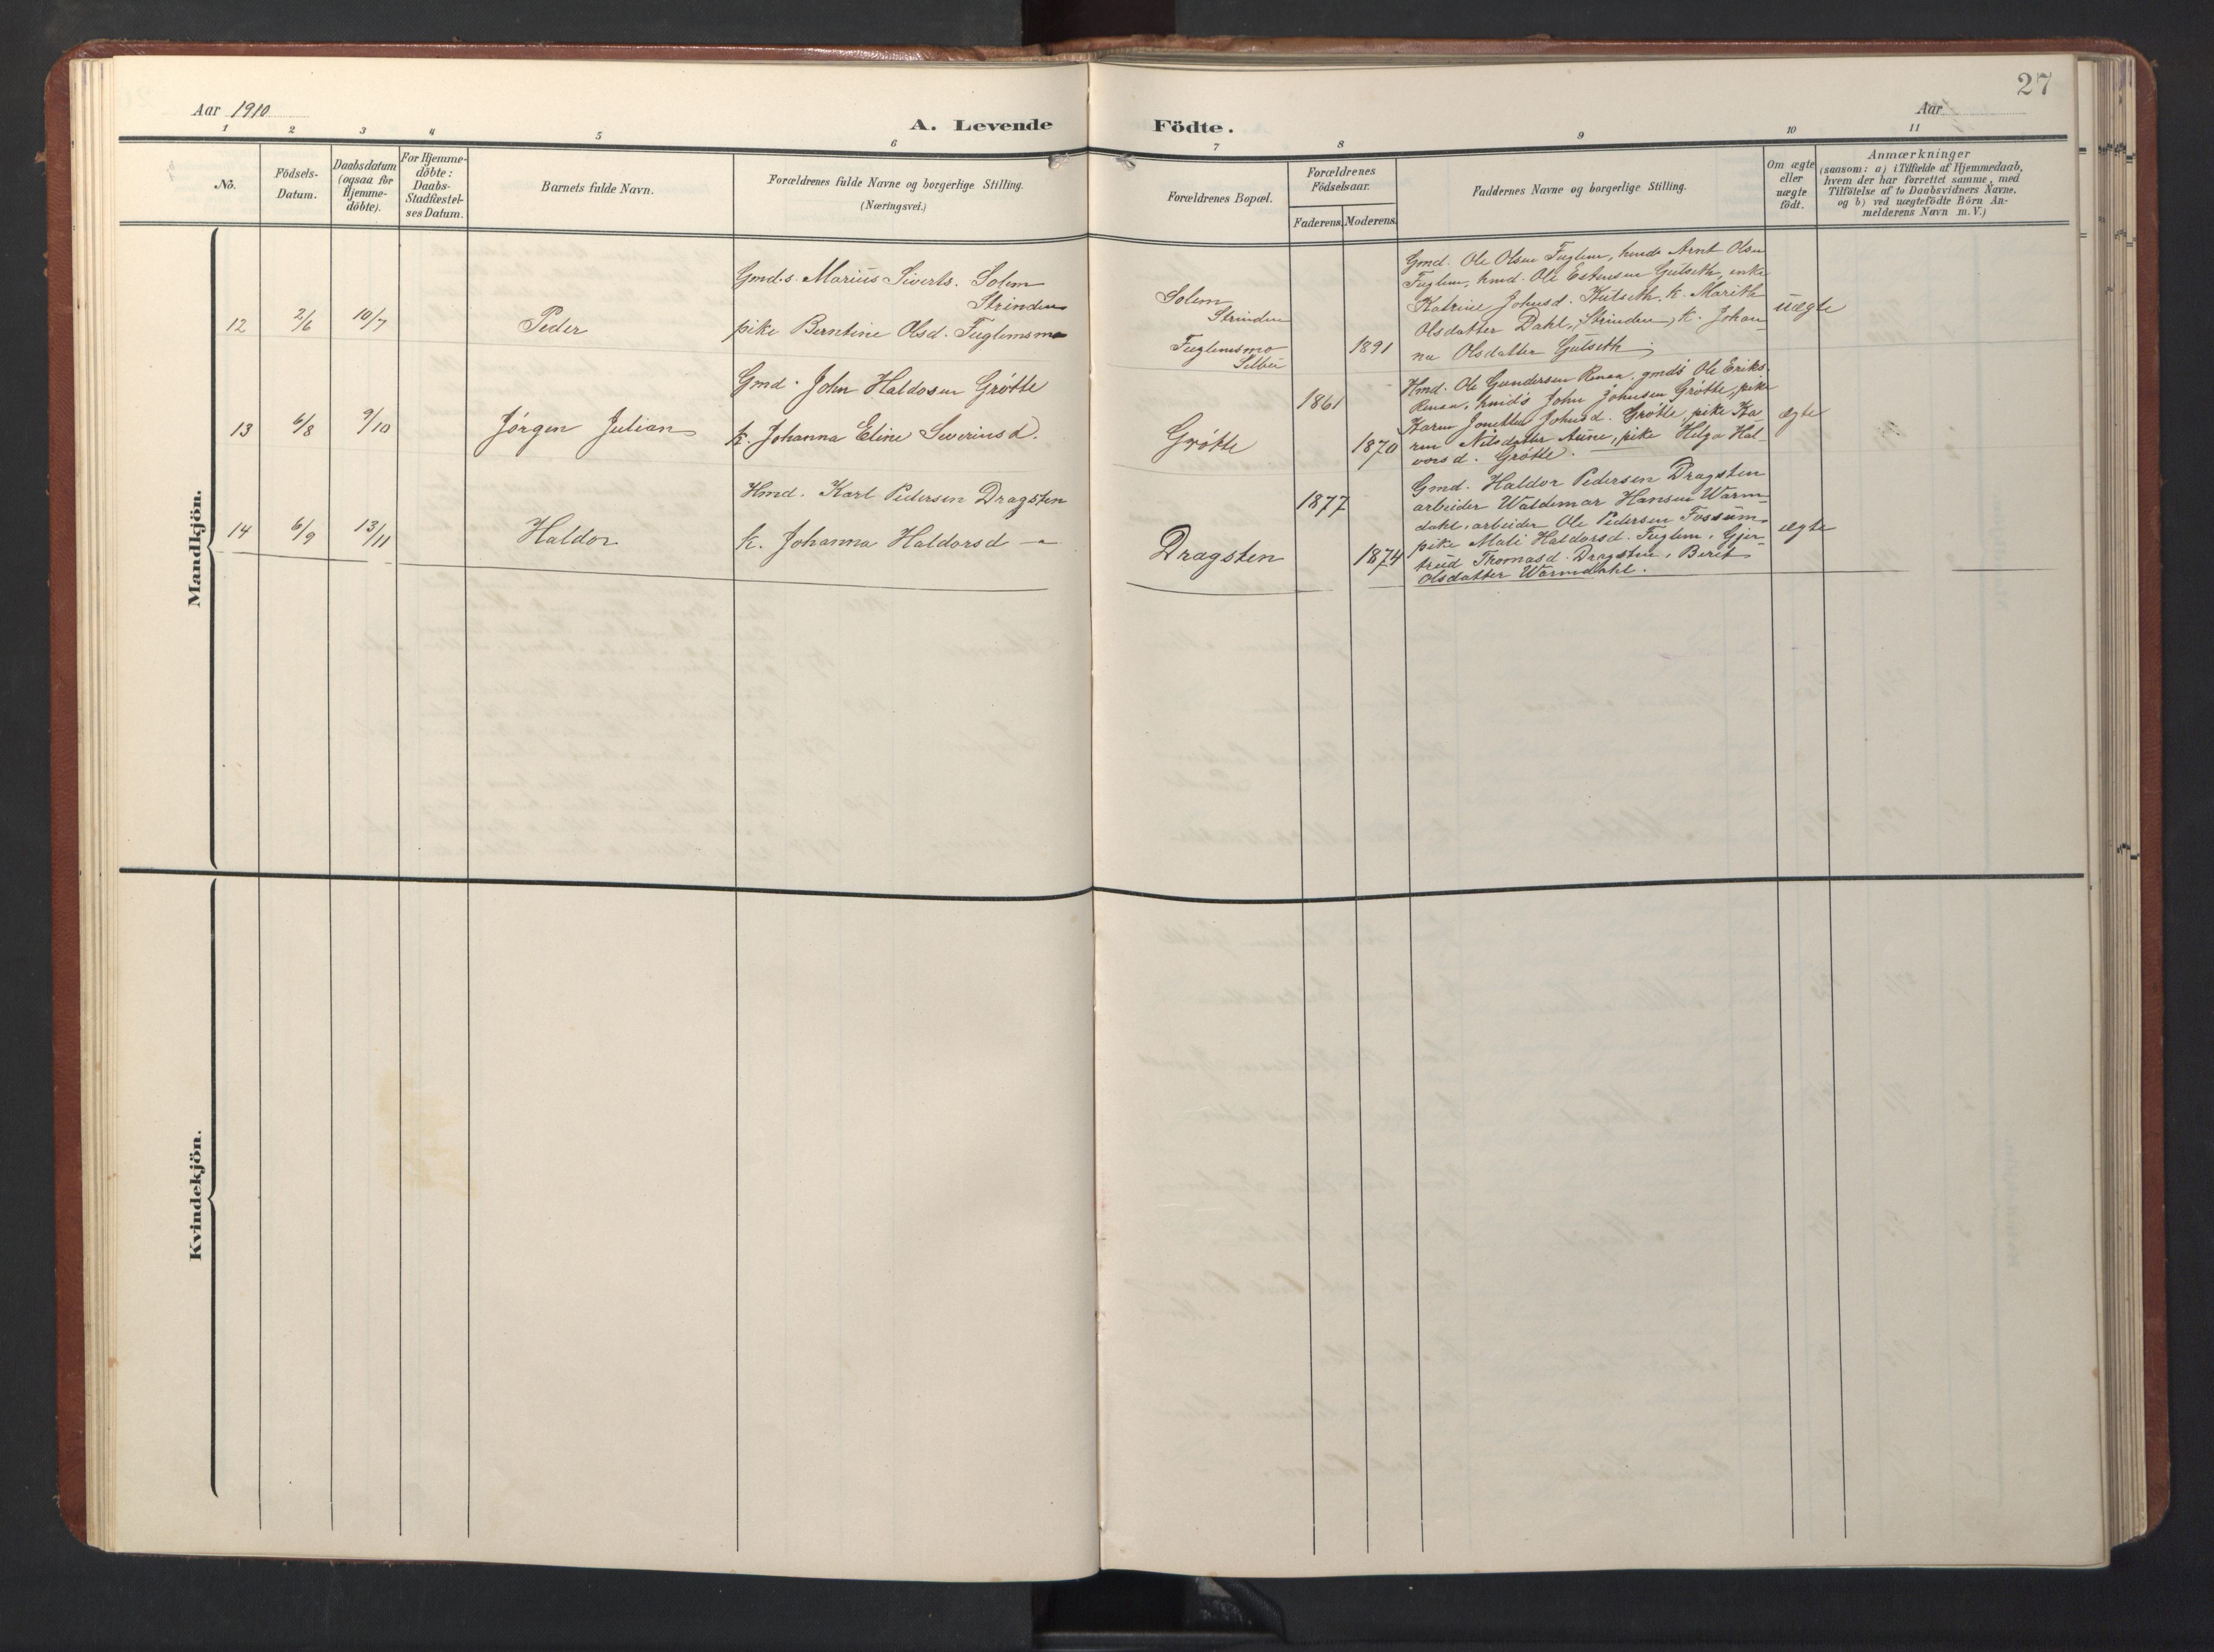 27
Aar 1910
A. Levende Födte.
Aar
1 2 3 4 5 6 7 8 9 10 11
No.
Födsels-
Datum.
Daabsdatum
(ogsaa for
Hjemme-
döbte).
For Hjemme-
döbte:
Daabs-
Stadfæstel-
ses Datum.
Barnets fulde Navn.
Forældrenes fulde Navne og borgerlige Stilling.
(Næringsvei.)
Forældrenes Bopæl.
Forældrenes
Födselsaar.
Faderens. Moderens.
Faddernes Navne og borgerlige Stilling.
Om ægte
eller
uægte
födt.
Anmærkninger
(saasom: a) i Tilfælde af Hjemmedaab,
hvem der har forrettet samme, med
Tilföielse af to Daabsvidners Navne.
og b) ved uægtefödte Börn An-
melderens Navn m. V.)
Mandkjön.
12 2/6 10/7 Peder
Gmd.s. Marius Siverts. Solem
Strinden
pike Berntine Olsd. Fuglemsmo
Solem
Strinden
Fuglemsmo
Selbu
1891
Gmd. Ole Olsen Fuglem, Arnt Olsen
Fuglem, hmd. Ole Estensen Gulseth, enke
Katrine Johnsd. k. Marith
Olsdatter Dahl, Strinden, k. Johan-
na Olsdatter Gulseth
uægte
13 6/8 9/10 Jørgen Julian
Gmd. John Haldosen Grøtte
k. Johanna Eline Severinsd.
Grøtte
1861
1870
Hmd. Ole Gundersen Renaa, gmds Ole Eriks.
Renaa, John Johnsen Grøtte, pike
Karen Johnsd. Grøtte, pike Ka
ren Nilsdatter Aune, pike Helga Hal-
vorsd. Grøtte.
ægte
14 6/9 13/11 Haldor
Hmd. Karl Pedersen Dragsten
k. Johanna Haldorsd —"—
Dragsten
1877
1874
Gmd. Haldor Pedersen Dragsten
arbeider Waldemar Hansen Warm-
dahl, arbeider Ole Pedersen Fossum
pike Mali Haldorsd. Fuglem, Gjer-
trud Thomasd. Dragsten, Beret
Olsdatter Warmdahl.
ægte
Kvindekjön.